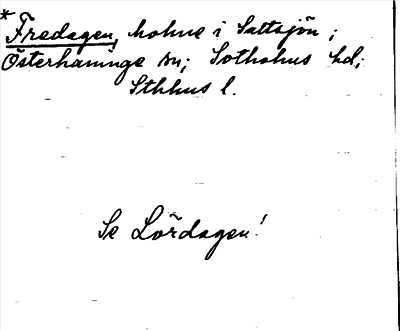 *Fredagen, holme i Saltsjön;
Österhaninge sn; Sotholms hd;
Sthlms l.
Se Lördagen!